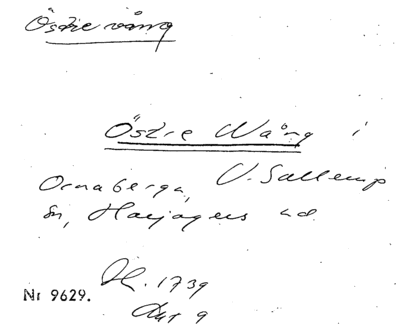 Östre vång
Östre Wång i
Ornaberga, V. Sallerup
sn, Harjagers hd.
Nr 9629. Ak. 1739
Akt 9